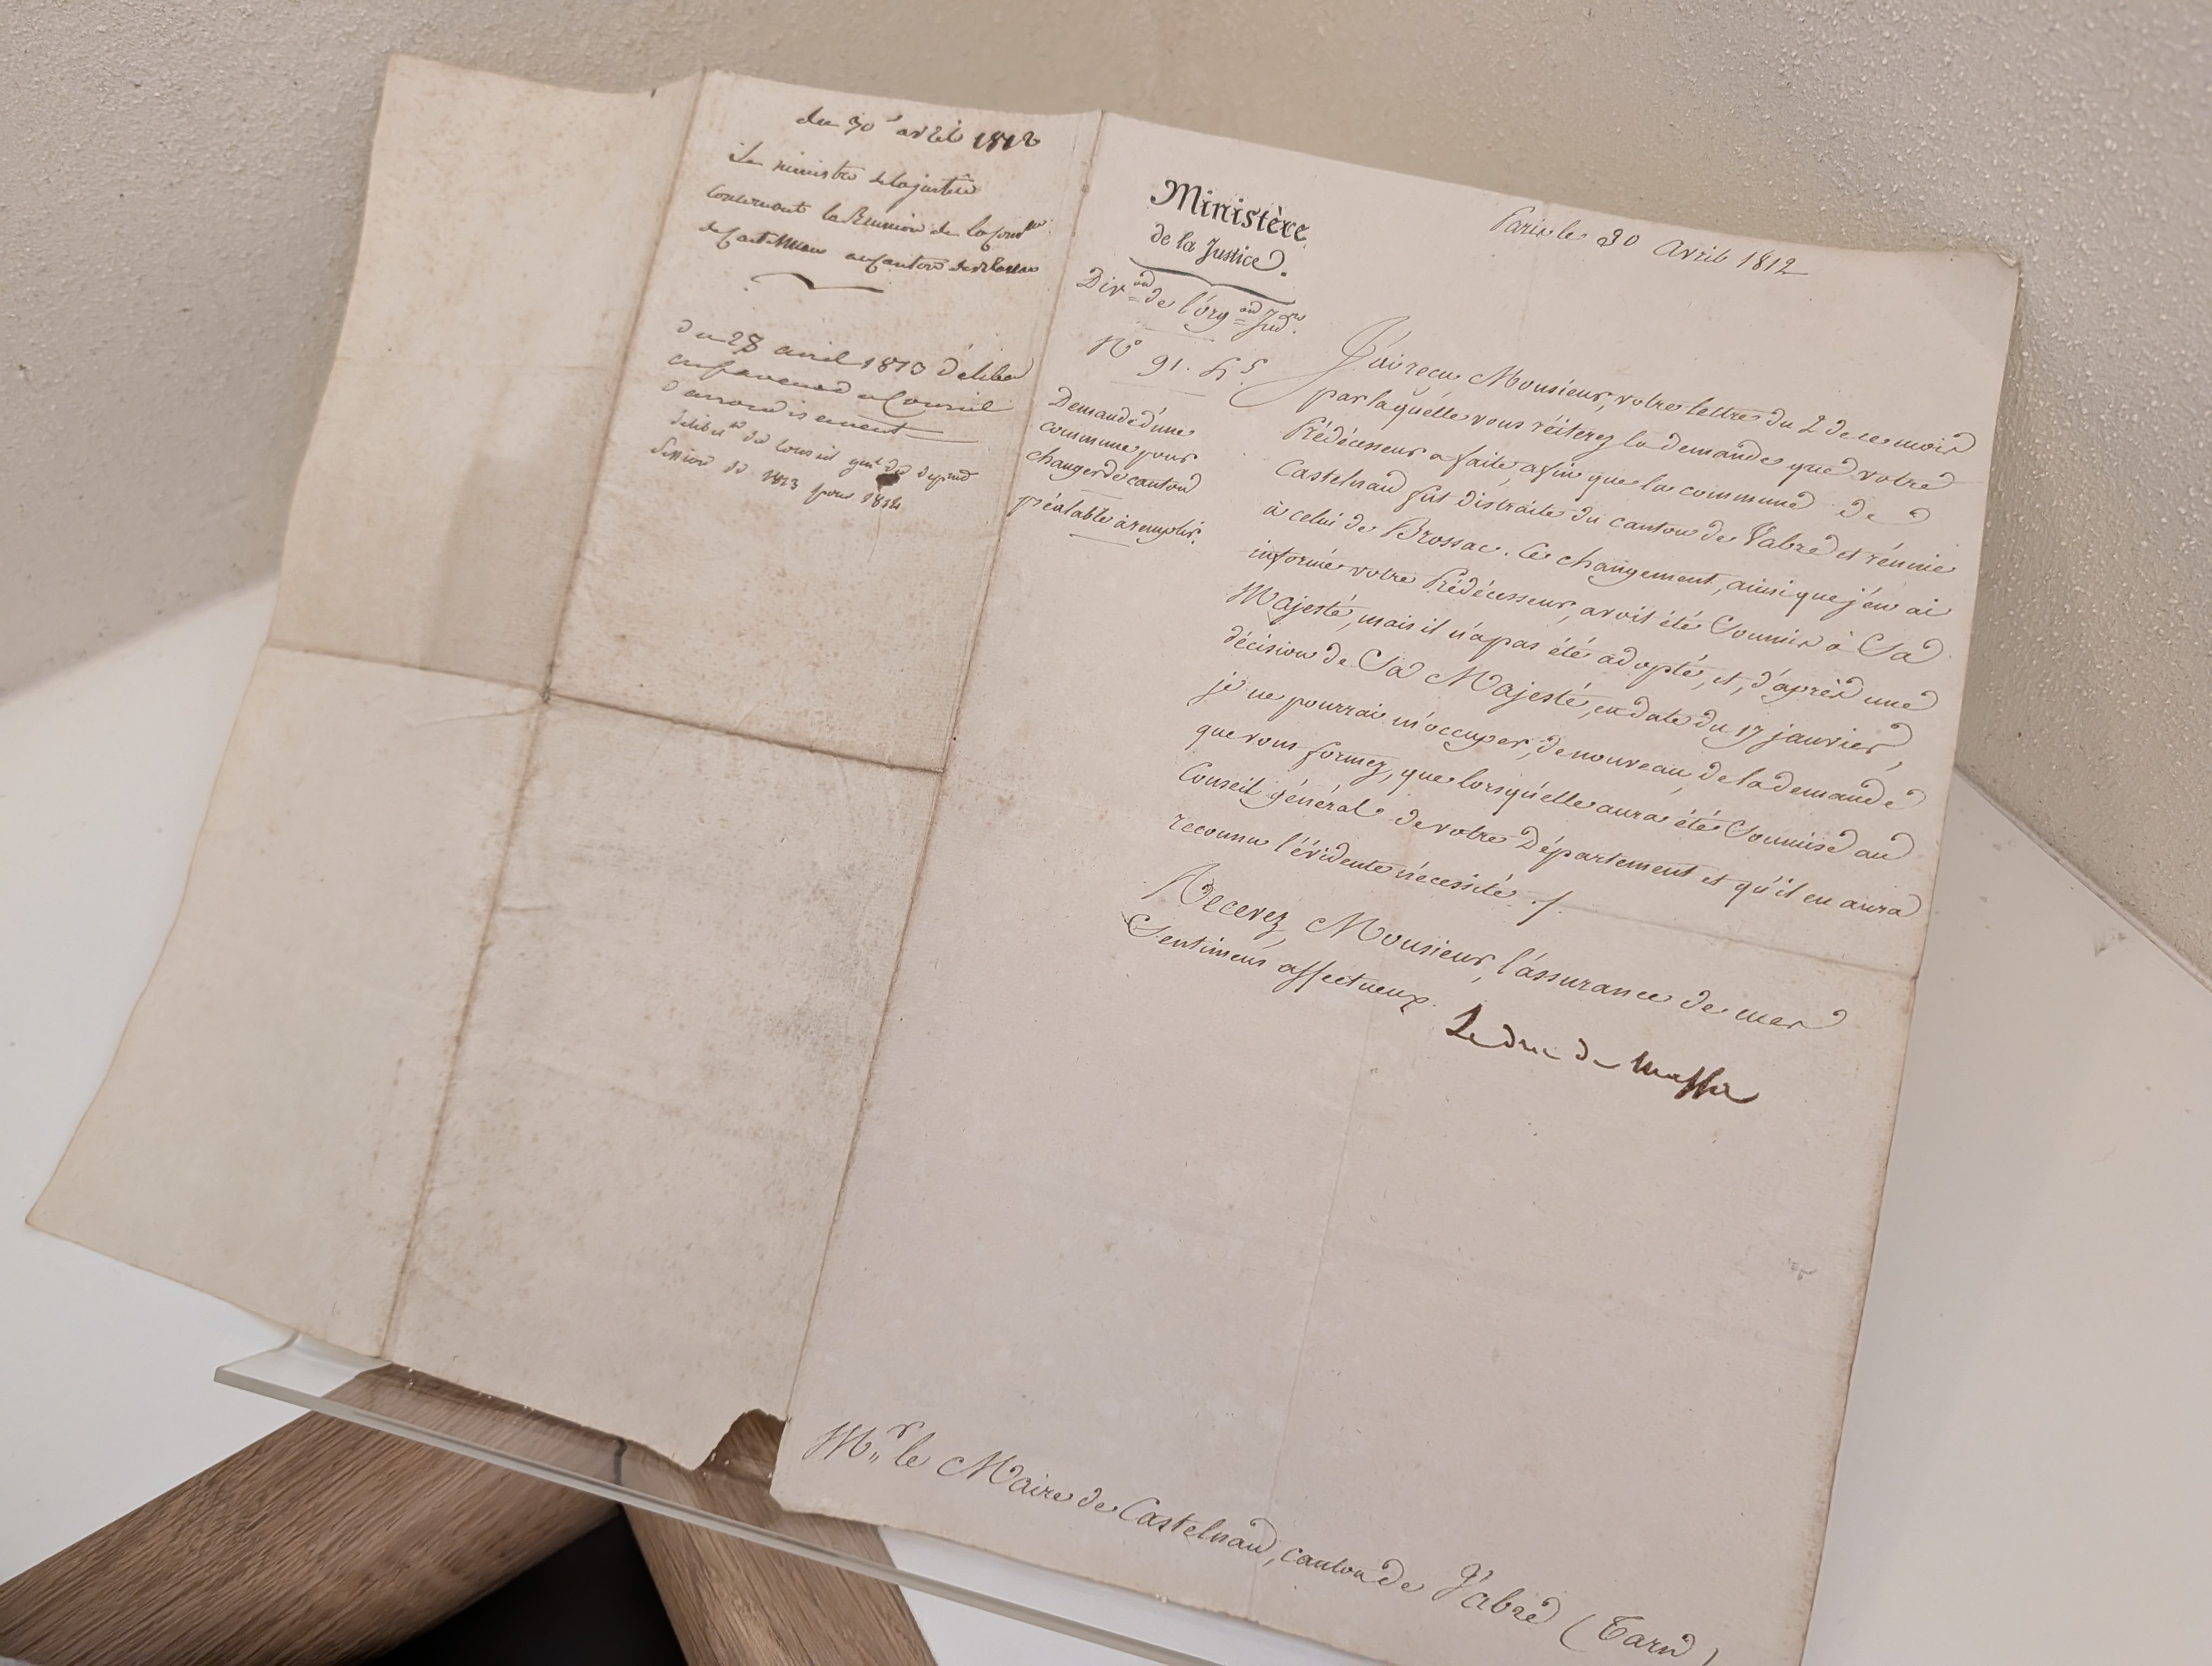 du 30 avril 1812
Le ministre de la justice
concernant la Réunion de la
de Castelnau au canton de
du 28 avril 1813 délibé
en faveur du Conseil
d'arrondissement
délib.on du Conseil gnl du
Session de 1813 pour 1814
Ministère
de la Justice.
Div.on de l'org.on Jud.re
N.o 91. L.5.
Demande d'une
commune pour
changer de canton
préalable à remplir.
Paris le 30 avril 1812
J'ai reçu Monsieur, votre lettre du 2 de ce mois
par laquelle vous réiterez la demande que votre
Prédécesseur a faite, afin que la commune de
Castelnau fut distraite du canton de Vabre et réunie
à celui de Brassac. Ce changement, ainsi que j'en ai
informé votre Prédécesseur, avoit été Soumis à Sa
Majesté, mais il n'a pas été adopté, et, d'après une
décision de Sa Majesté, en date du 17 janvier,
je ne pourrai m'occuper, de nouveau, de la demande
que vous formez, que lorsqu'elle aura été Soumise au
Conseil général de votre Département et qu'il en aura
reconnu l'évidente nécessité ./.
Recevez, Monsieur, l'assurance de mes
Sentimens affectueux.
Le duc de Massa
M.r le Maire de Castelnau, canton de Vabre (Tarn)